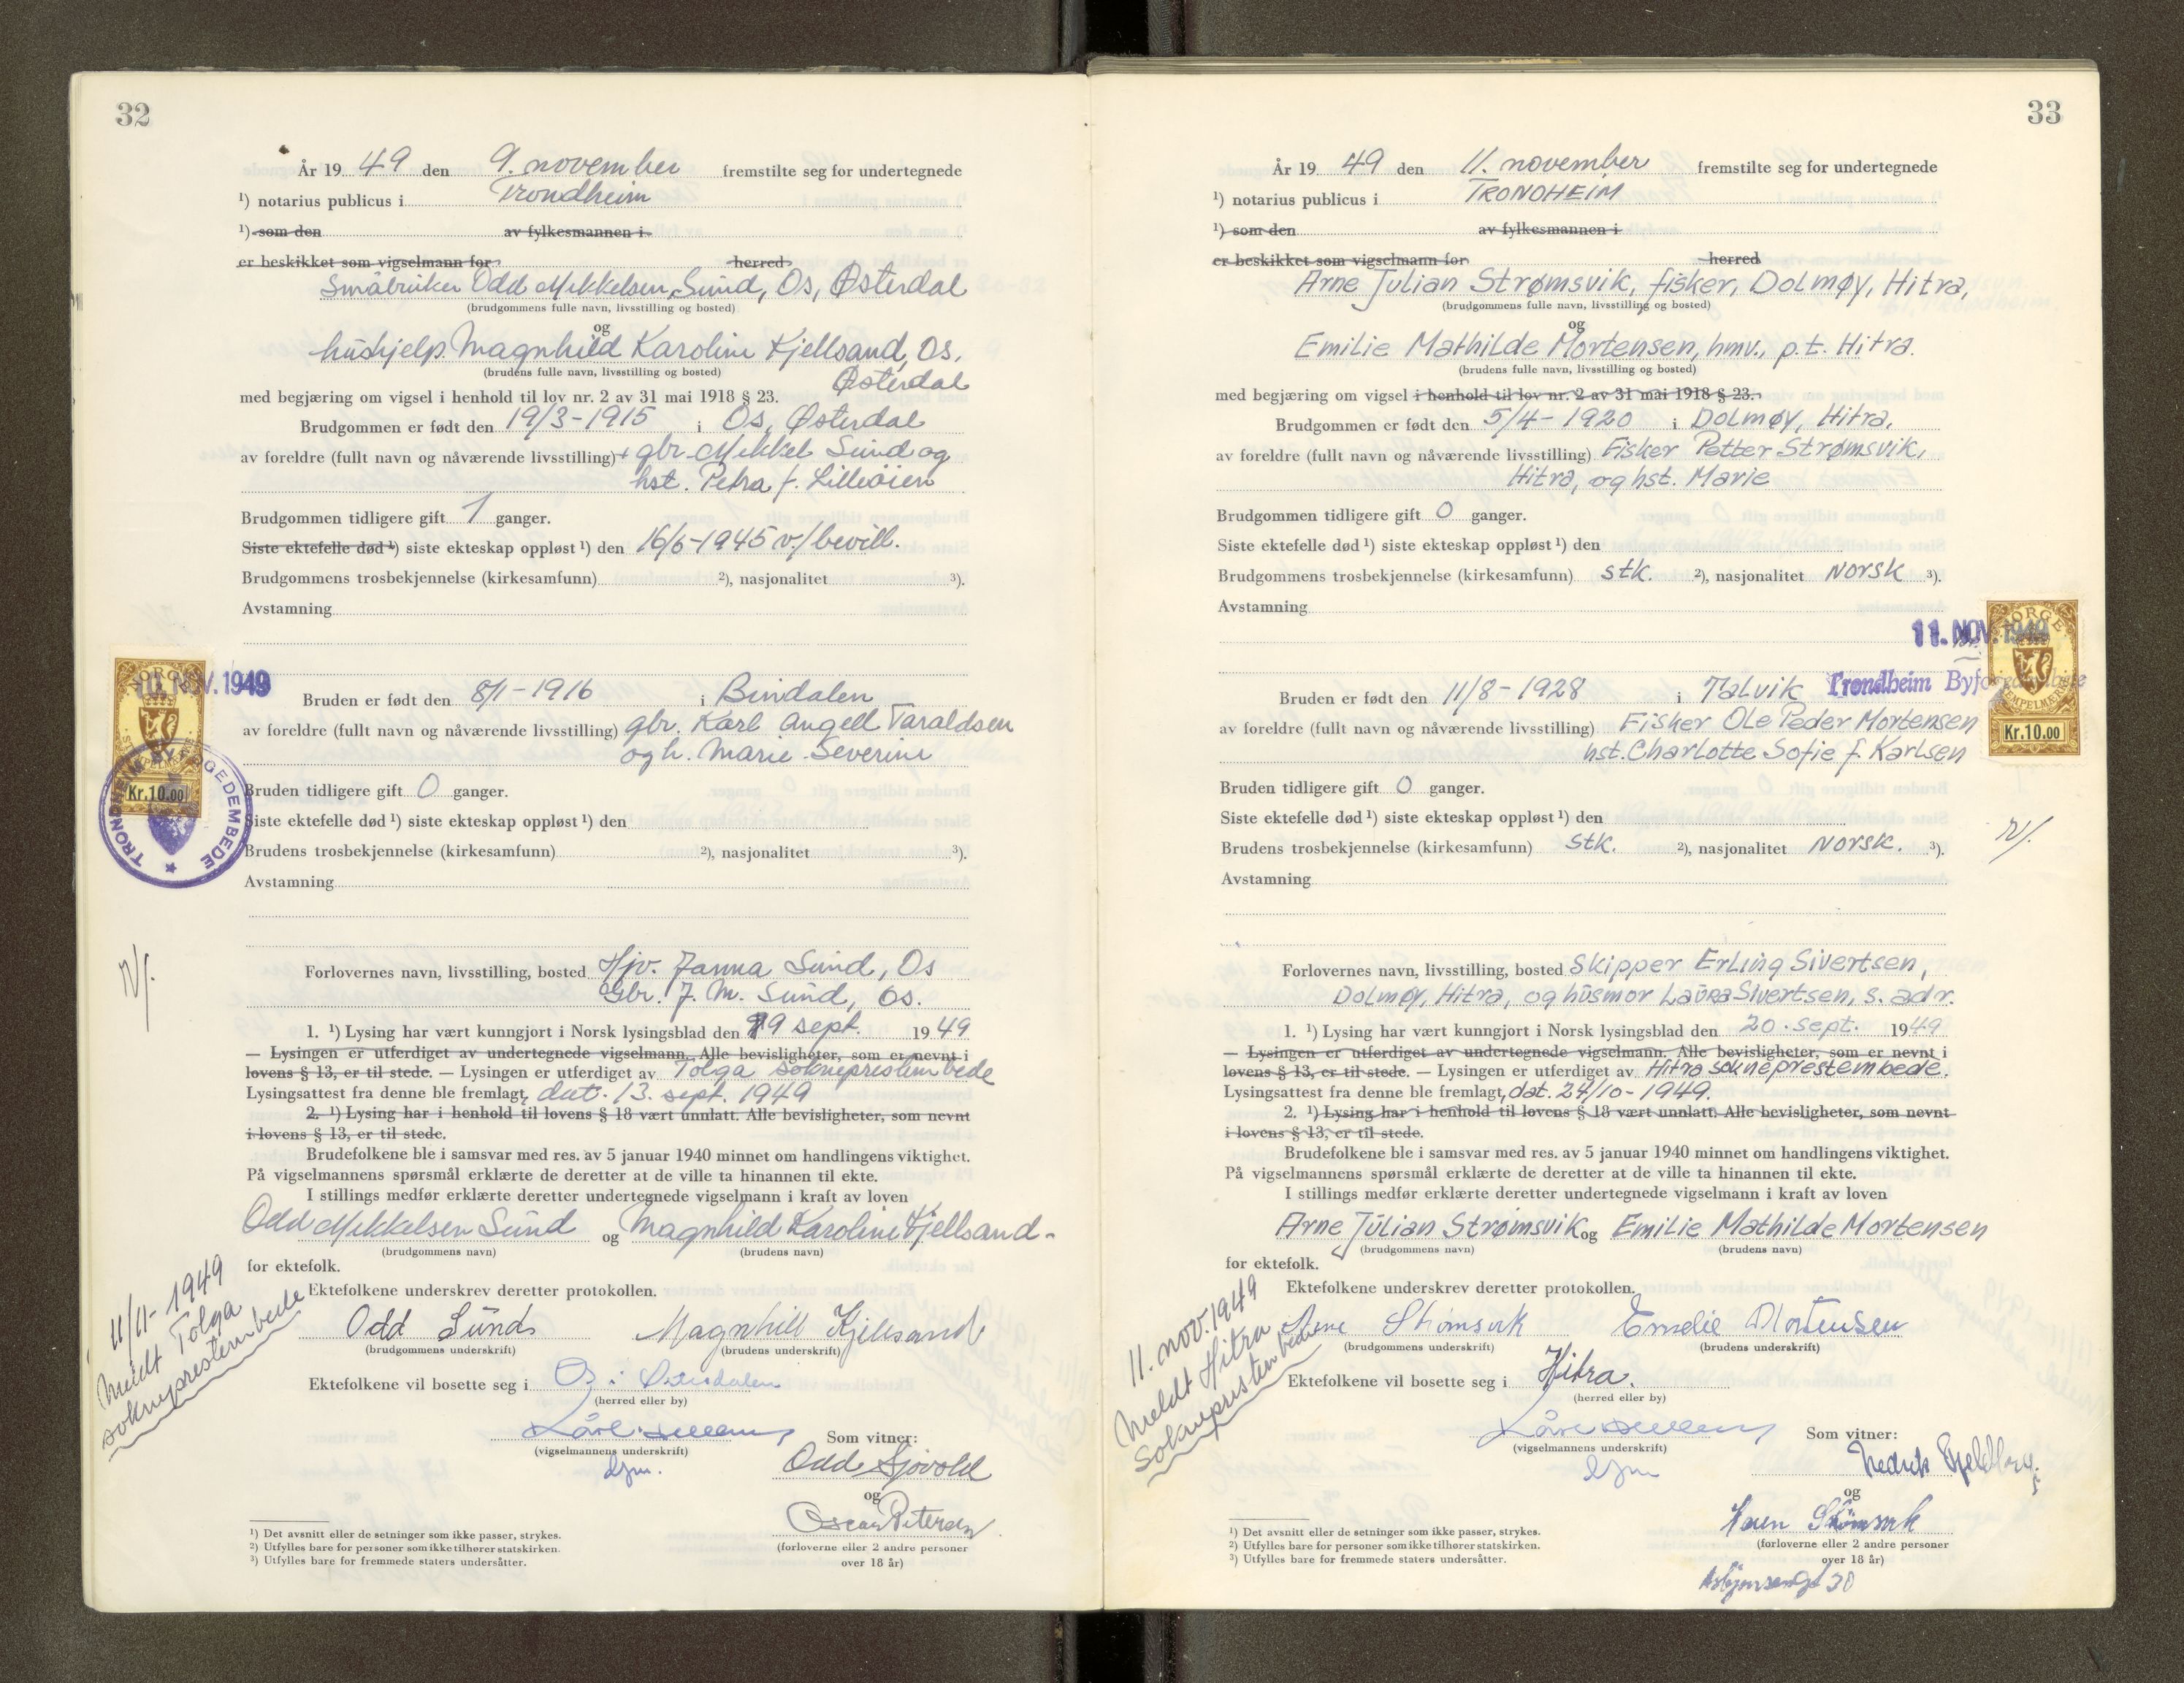 32
År 19 49 den 9. november fremstilte seg for undertegnede
¹) notarius publicus i Trondheim
¹) som den av fylkesmannen i
er beskikket som vigselmann for herred
Småbruker Odd Mikkelsen Sund, Os, Østerdal
(brudgommens fulle navn, livsstilling og bosted)
og
hushjelp Magnhild Karoline Kjellsand, Os,
(brudens fulle navn, livsstilling og bosted)
Østerdal
med begjæring om vigsel i henhold til lov nr. 2 av 31 mai 1918 § 23.
Brudgommen er født den 19/3-1915 i Os, Østerdal
av foreldre (fullt navn og nåværende livsstilling) + gbr. Mikkel Sund og
hst. Petra f. Lilleøien
Brudgommen tidligere gift 1 ganger.
Siste ektefelle død ¹) siste ekteskap oppløst ¹) den 16/6-1945 v/bevill.
Brudgommens trosbekjennelse (kirkesamfunn) ²), nasjonalitet ³).
Avstamning
10. NOV. 1949
NORGE
Kr.10.00
TRONDHEIM BYFOGEDEMBEDE
Bruden er født den 8/1-1916 i Bindalen
av foreldre (fullt navn og nåværende livsstilling) gbr. Karl Angell Taraldsen
og h. Marie Severine
Bruden tidligere gift 0 ganger.
Siste ektefelle død ¹) siste ekteskap oppløst ¹) den
Brudens trosbekjennelse (kirkesamfunn) ²), nasjonalitet ³).
Avstamning
N/.
Forlovernes navn, livsstilling, bosted Hjv. Janna Sund, Os
Gbr. J. M. Sund, Os.
1. ¹) Lysing har vært kunngjort i Norsk lysingsblad den 19 sept. 1949
— Lysingen er utferdiget av undertegnede vigselmann. Alle bevisligheter, som er nevnt i
lovens § 13, er til stede. — Lysingen er utferdiget av Tolga sokneprestembede
Lysingsattest fra denne ble fremlagt, dat. 13. sept. 1949
2. ¹) Lysing har i henhold til lovens § 18 vært unnlatt. Alle bevisligheter, som nevnt
i lovens § 13, er til stede.
Brudefolkene ble i samsvar med res. av 5 januar 1940 minnet om handlingens viktighet.
På vigselmannens spørsmål erklærte de deretter at de ville ta hinannen til ekte.
I stillings medfør erklærte deretter undertegnede vigselmann i kraft av loven
Odd Mikkelsen Sund og Magnhild Karoline Kjellsand
(brudgommens navn) (brudens navn)
for ektefolk.
Ektefolkene underskrev deretter protokollen.
Odd Sund Magnhill Kjellsand
(brudgommens underskrift) (brudens underskrift)
11/11-1949
Meldt Tolga
sokneprestembede
Ektefolkene vil bosette seg i Os i Østerdalen
(herred eller by)
(vigselmannens underskrift)
Som vitner:
Odd Sjøvold
og
Oscar Petersen
(forloverne eller 2 andre personer
over 18 år)
¹) Det avsnitt eller de setninger som ikke passer, strykes.
²) Utfylles bare for personer som ikke tilhører statskirken.
³) Utfylles bare for fremmede staters undersåtter.
33
År 19 49 den 11. november fremstilte seg for undertegnede
¹) notarius publicus i TRONDHEIM
¹) som den av fylkesmannen i
er beskikket som vigselmann for herred
Arne Julian Strømsvik, fisker, Dolmøy, Hitra,
(brudgommens fulle navn, livsstilling og bosted)
og
Emilie Mathilde Mortensen, hmv., p.t. Hitra.
(brudens fulle navn, livsstilling og bosted)
med begjæring om vigsel i henhold til lov nr. 2 av 31 mai 1918 § 23.
Brudgommen er født den 5/4-1920 i Dolmøy, Hitra,
av foreldre (fullt navn og nåværende livsstilling) Fisker Petter Strømsvik,
Hitra, og hst. Marie
Brudgommen tidligere gift 0 ganger.
Siste ektefelle død ¹) siste ekteskap oppløst ¹) den
Brudgommens trosbekjennelse (kirkesamfunn) stk. ²), nasjonalitet Norsk ³).
Avstamning
11. NOV. 1949
Trondheim Byfogedembete
NORGE
STEMPELMERKE
Kr.10.00
Bruden er født den 11/8-1928 i Talvik
av foreldre (fullt navn og nåværende livsstilling) Fisker Ole Peder Mortensen
hst. Charlotte Sofie f. Karlsen
Bruden tidligere gift 0 ganger.
Siste ektefelle død ¹) siste ekteskap oppløst ¹) den
Brudens trosbekjennelse (kirkesamfunn) stk. ²), nasjonalitet Norsk. ³).
N/.
Avstamning
Forlovernes navn, livsstilling, bosted Skipper Erling Sivertsen,
Dolmøy, Hitra, og husmor Laura Sivertsen, s. adr.
1. ¹) Lysing har vært kunngjort i Norsk lysingsblad den 20. sept. 1949
— Lysingen er utferdiget av undertegnede vigselmann. Alle bevisligheter, som er nevnt i
lovens § 13, er til stede. — Lysingen er utferdiget av Hitra sokneprestembede.
Lysingsattest fra denne ble fremlagt, dat. 24/10-1949.
2. ¹) Lysing har i henhold til lovens § 18 vært unnlatt. Alle bevisligheter, som nevnt
i lovens § 13, er til stede.
Brudefolkene ble i samsvar med res. av 5 januar 1940 minnet om handlingens viktighet.
På vigselmannens spørsmål erklærte de deretter at de ville ta hinannen til ekte.
I stillings medfør erklærte deretter undertegnede vigselmann i kraft av loven
Arne Julian Strømsvik og Emilie Mathilde Mortensen
(brudgommens navn) (brudens navn)
for ektefolk.
Ektefolkene underskrev deretter protokollen.
Arne Strømsvik Emelie Mortensen
(brudgommens underskrift) (brudens underskrift)
11. nov. 1949
Meldt Hitra
Sokneprestembede
Ektefolkene vil bosette seg i Hitra.
(herred eller by)
(vigselmannens underskrift)
Som vitner:
og
Strømsvik
(forloverne eller 2 andre personer
over 18 år)
¹) Det avsnitt eller de setninger som ikke passer, strykes.
²) Utfylles bare for personer som ikke tilhører statskirken.
³) Utfylles bare for fremmede staters undersåtter.